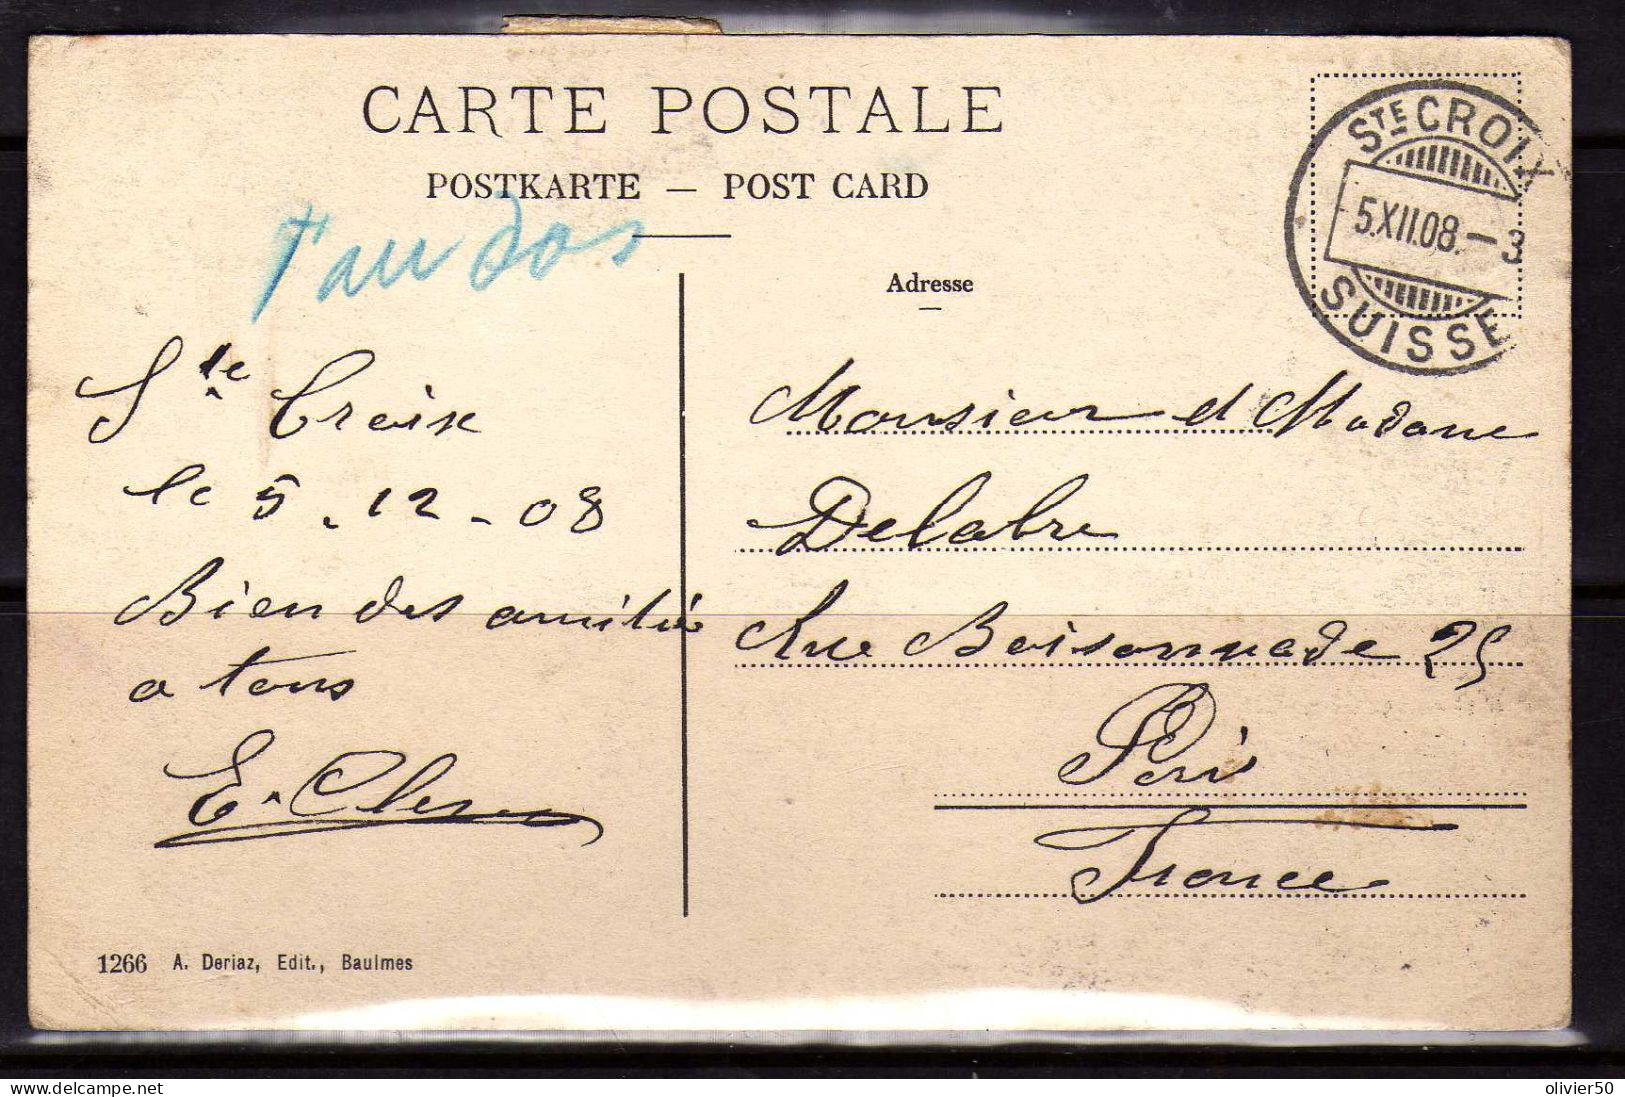 CARTE POSTALE
POSTKARTE — POST CARD
T au dos
Adresse
STE CROIX
5.XII.08.-3
SUISSE
Ste Croix
le 5.12-08
Bien des amitiés
a tous
E. Clerc
Monsieur et Madame
Delabre
Rue Boisonnade 25
Paris
France
1266 A. Deriaz, Edit., Baulmes
delcampe.net
olivier50